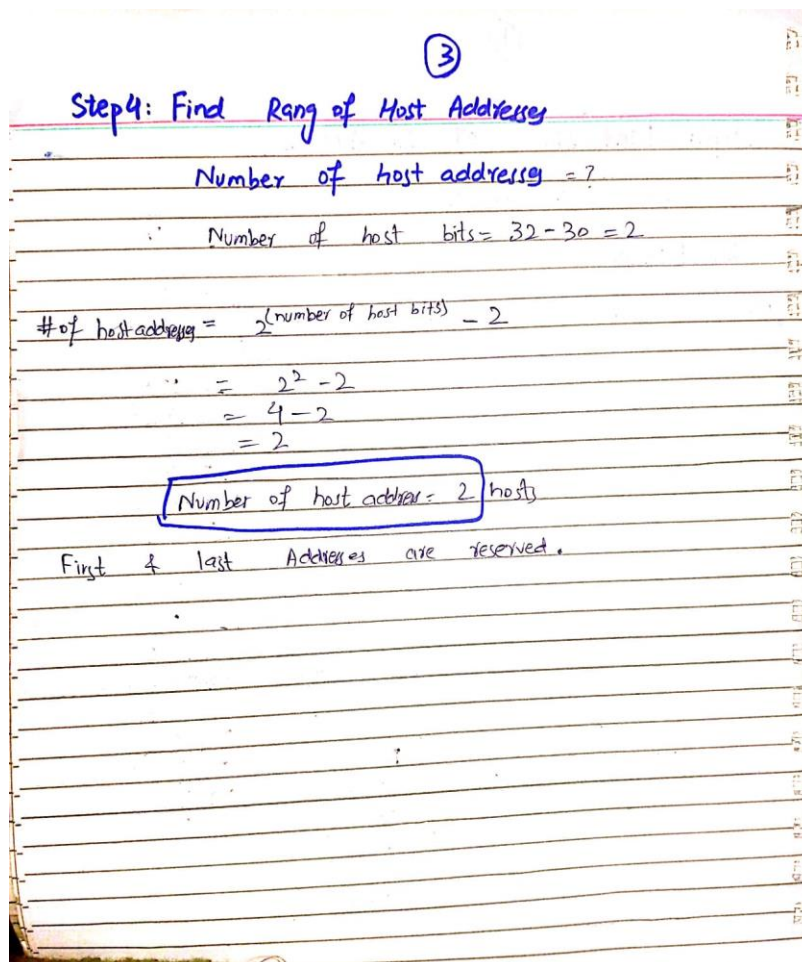 3
Step4: Find Rang of Host Addresses
Number of host addresses = ?
Number of host bits = 32 - 30 = 2
# of host addresses = 2^(number of host bits) - 2
= 2² - 2
= 4 - 2
= 2
Number of host address = 2 hosts
First & last Addresses are reserved.